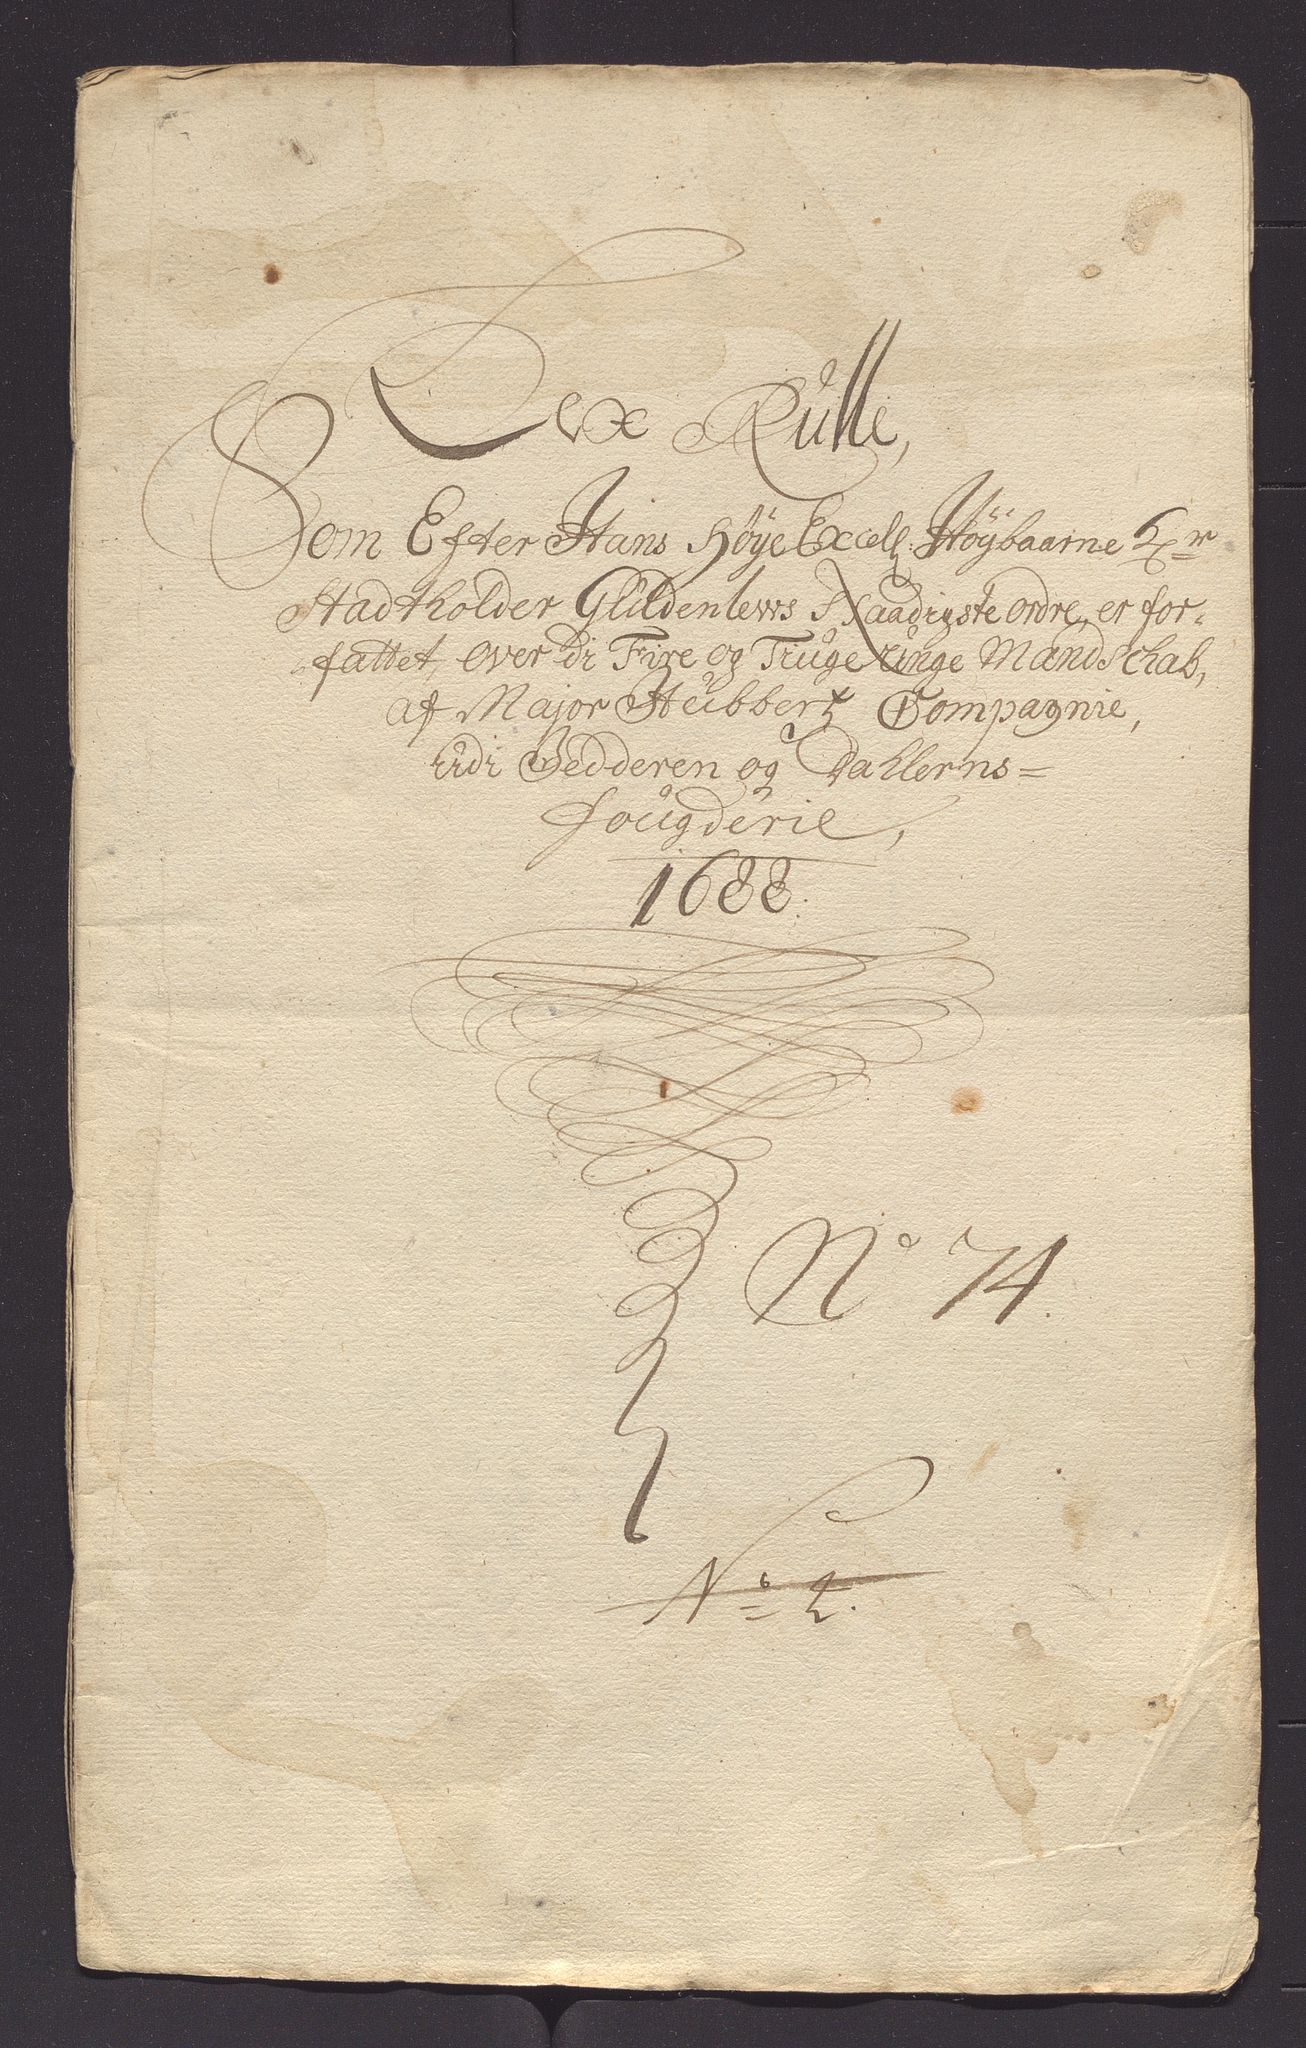 Lex Rulle,
Som Efter Hans Høÿe Excell: Høÿbaarne Hr
Stadtholder Gÿldenlews Naadigste ordre, er for-
fattet, over di Fire og Tiuge unge Mandschab,
af Major Hubbertz Compagnie,
udi Nedderen og Dahlerns=
fougderie,
1688.
No 74.
No 2.